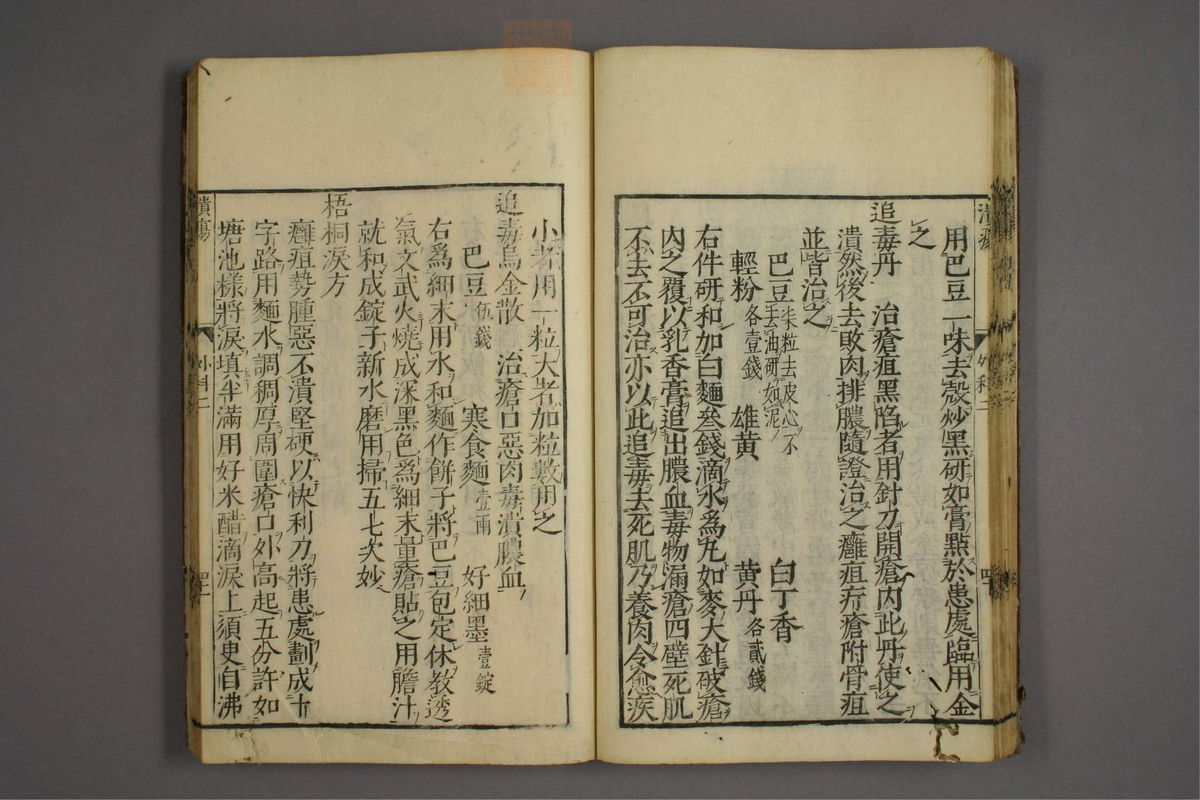 用巴豆一味去殼炒黑研如膏㸃於患處臨用金
之
追毒丹　治瘡疽黑陷者用針刀開瘡内此丹使之
潰然後去敗肉排膿隨證治之癰疽疔瘡附骨疽
並皆治之
巴豆 粒去皮心不去油研如泥　白丁香
輕粉各壹錢　雄黄　黄丹各貳錢
右件研和加白麵叁錢滴水為丸如麥大針破瘡
内之覆以乳香膏追出膿血毒物漏瘡四壁死肌
不去不可治亦以此追毒去死肌乃養肉令愈疾
潰瘍
外科二
小者用一粒大者加粒數用之
追毒烏金散　治瘡口惡肉毒潰膿血
巴豆伍錢　寒食麵壹兩　好細墨壹錠
右爲細末用水和麵作餅子將巴豆包定休教透
氣文武火燒成深黑色爲細末量瘡貼之用膽汁
就和成錠子新水磨用掃五七次妙
梧桐淚方
癰疽勢腫惡不潰堅硬以快利刀將患處劃成十
字路用麵水調稠厚周圍瘡口外高起五分許如
塘池樣將淚填半滿用好米醋滴淚上須臾自沸
潰瘍
外科二